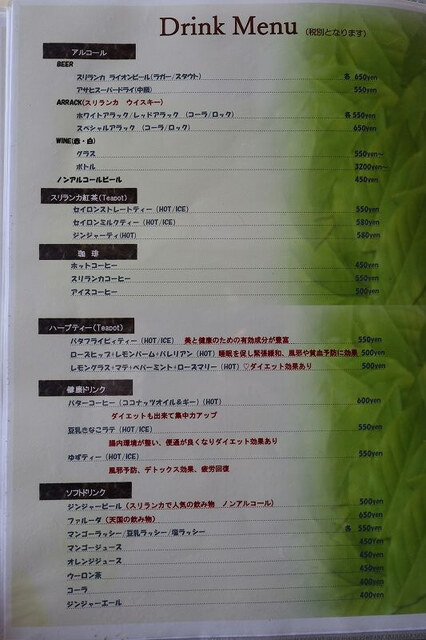 Drink Menu (税別となります)
アルコール
BEER
スリランカ ライオンビール(ラガー/スタウト) 各 650yen
アサヒスーパードライ(中瓶) 550yen
ARRACK(スリランカ ウイスキー)
ホワイトアラック/レッドアラック (コーラ/ロック) 各 550yen
スペシャルアラック (コーラ/ロック) 650yen
WINE(赤・白)
グラス 550yen~
ボトル 3200yen~
ノンアルコールビール 450yen
スリランカ紅茶(Teapot)
セイロンストレートティー (HOT/ICE) 550yen
セイロンミルクティー (HOT/ICE) 580yen
ジンジャーティ(HOT) 580yen
珈琲
ホットコーヒー 450yen
スリランカコーヒー 550yen
アイスコーヒー 500yen
ハーブティー(Teapot)
バタフライピィティー (HOT/ICE) 美と健康のための有効成分が豊富 550yen
ローズヒップ・レモンバーム・バレリアン (HOT) 睡眠を促し緊張緩和、風邪や貧血予防に効果 500yen
レモングラス・マテ・ペパーミント・ローズマリー (HOT) ♡ダイエット効果あり 500yen
健康ドリンク
バターコーヒー (ココナッツオイル&ギー) (HOT) 600yen
ダイエットも出来て集中力アップ
豆乳きなこラテ (HOT/ICE) 550yen
腸内環境が整い、便通が良くなりダイエット効果あり
ゆずティー (HOT/ICE) 550yen
風邪予防、デトックス効果、疲労回復
ソフトドリンク
ジンジャービール (スリランカで人気の飲み物 ノンアルコール) 500yen
ファルーダ (天国の飲み物) 650yen
マンゴーラッシー/豆乳ラッシー/塩ラッシー 各 550yen
マンゴージュース 450yen
オレンジジュース 450yen
ウーロン茶 450yen
コーラ 400yen
ジンジャーエール 400yen